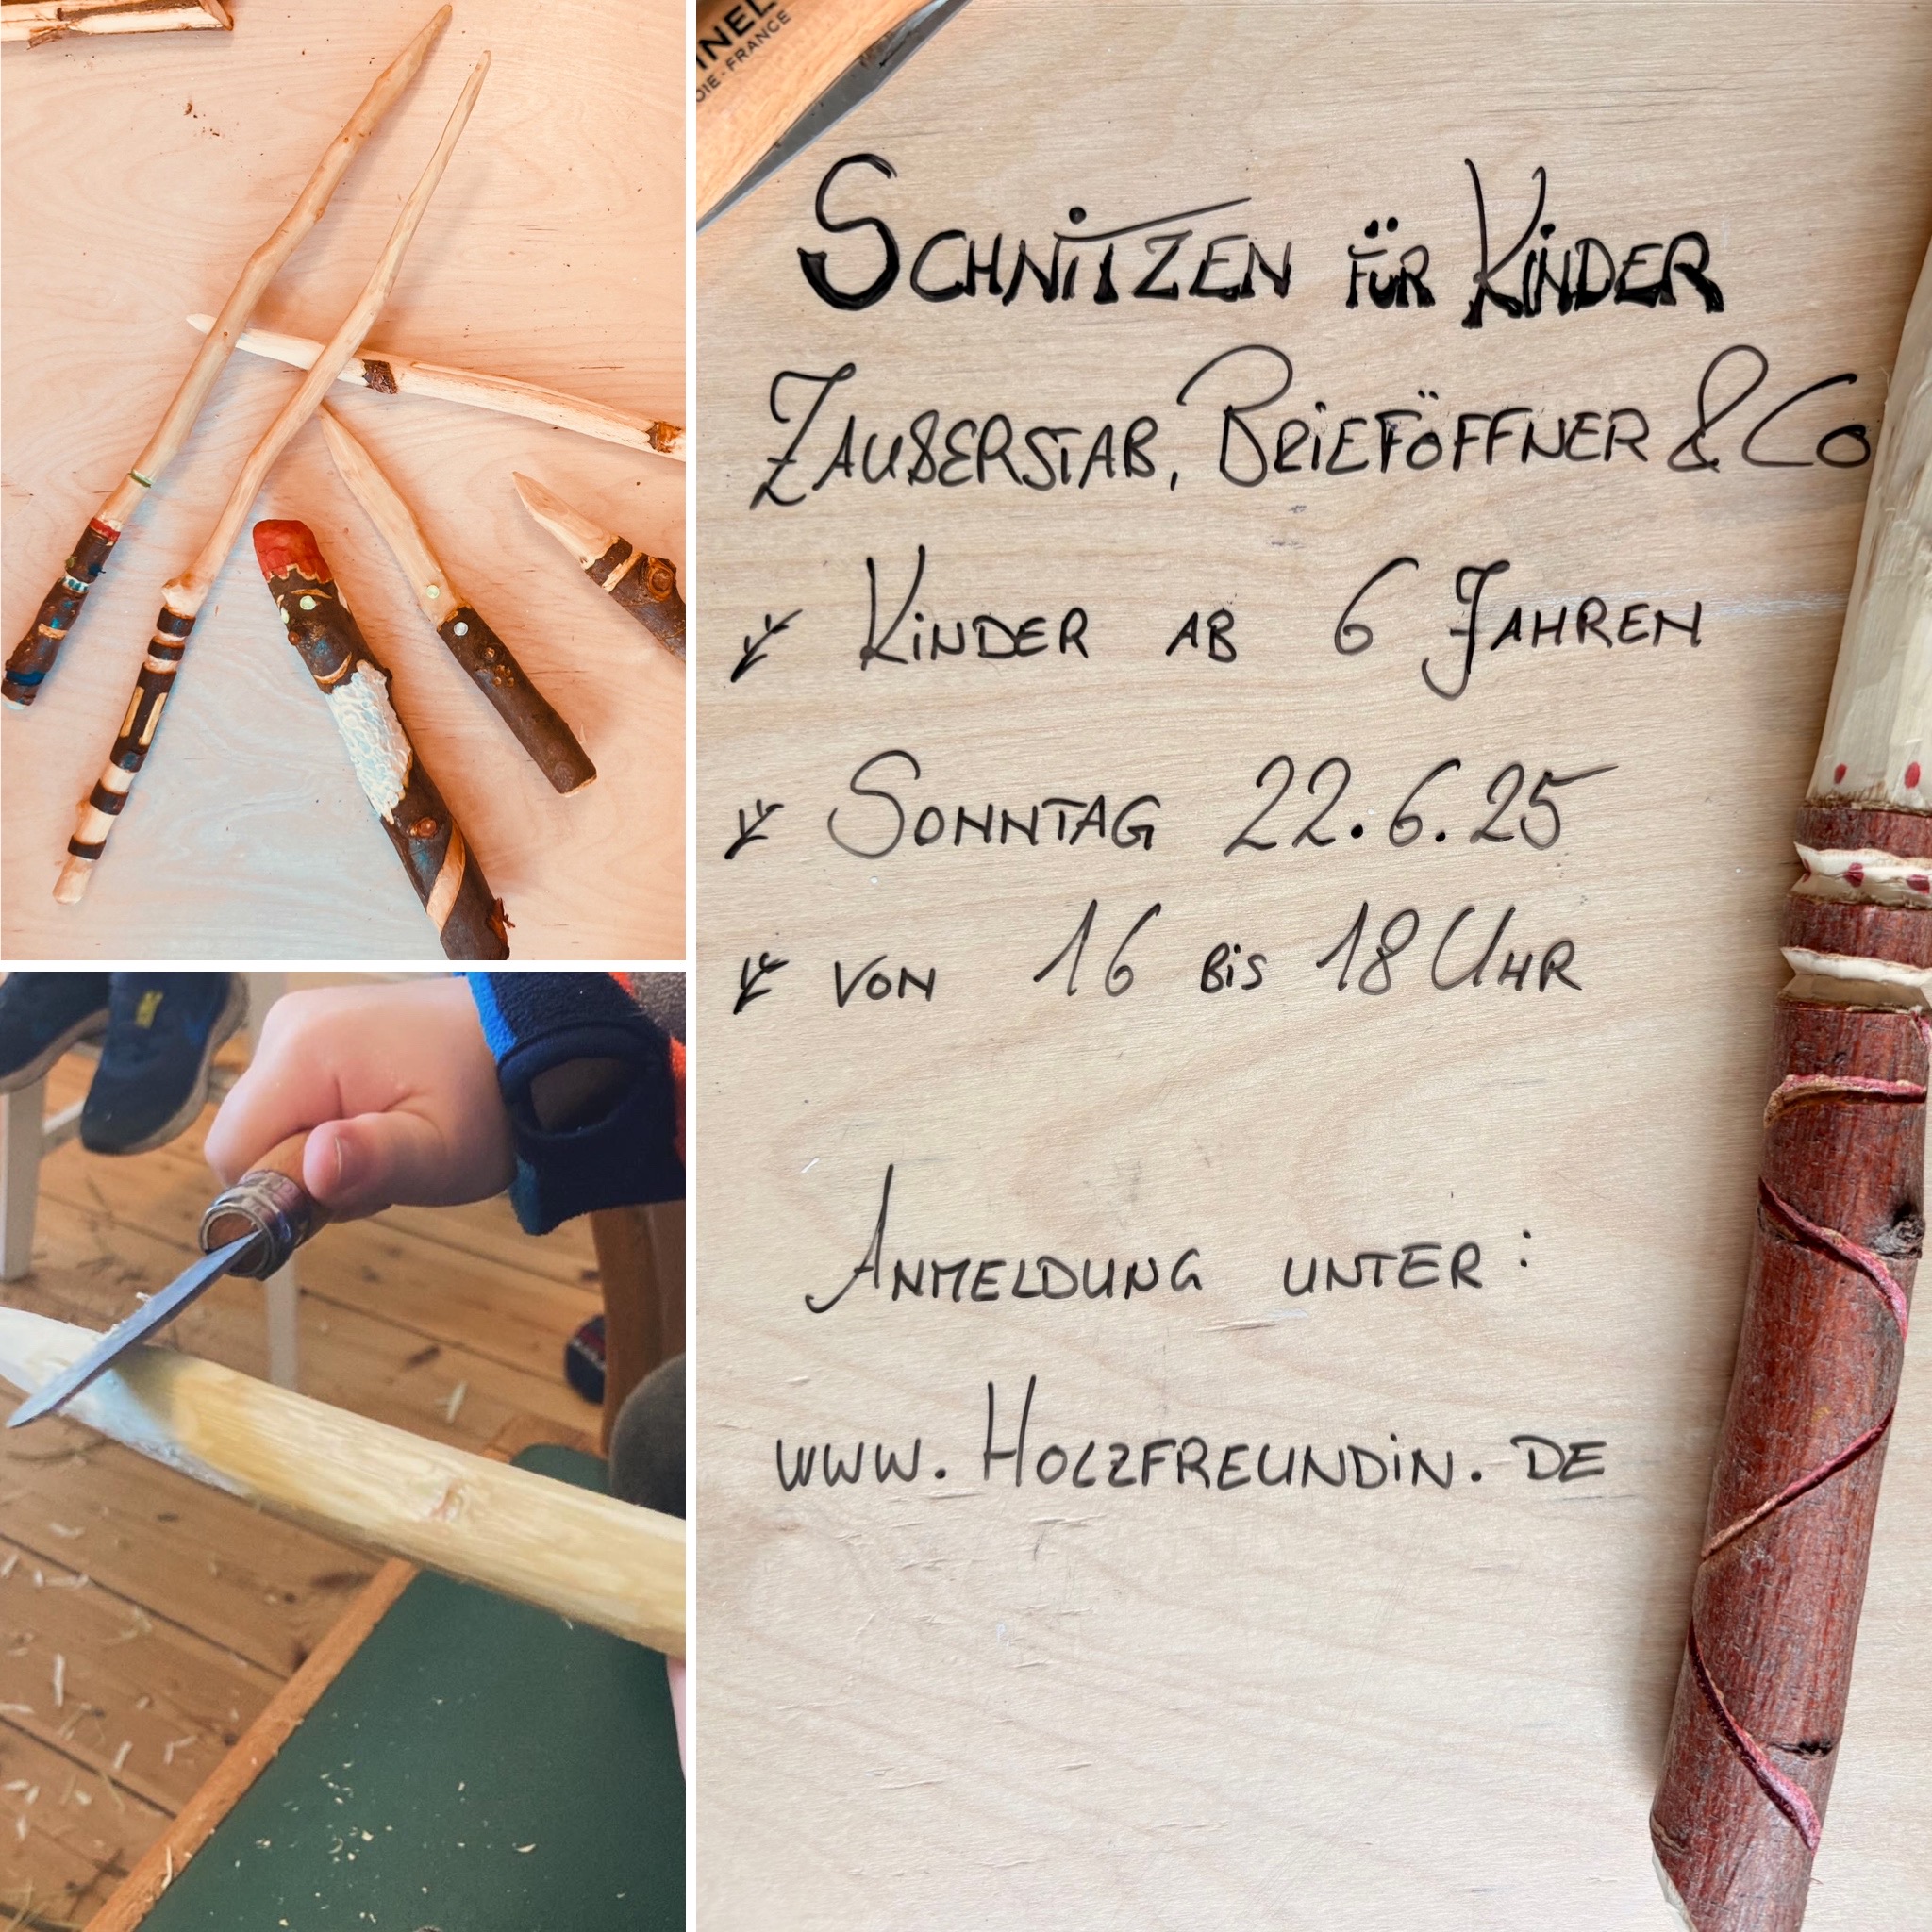 INEL
OIE-FRANCE
SCHNITZEN FÜR KINDER
ZAUBERSTAB, BRIEFÖFFNER & CO
KINDER AB 6 JAHREN
SONNTAG 22.6.25
VON 16 BIS 18 UHR
ANMELDUNG UNTER:
WWW.HOLZFREUNDIN.DE